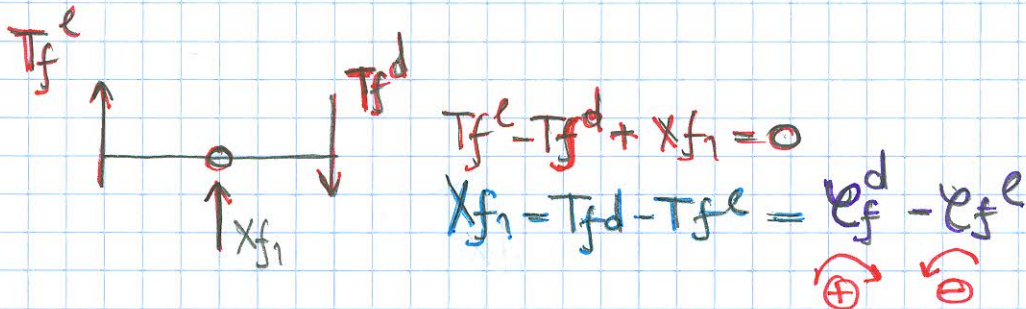 Tf^l
Tf^d
Xf₁
Tf^l - Tf^d + Xf₁ = 0
Xf₁ = Tfd - Tf^l = φ_f^d - φ_f^l
+ -